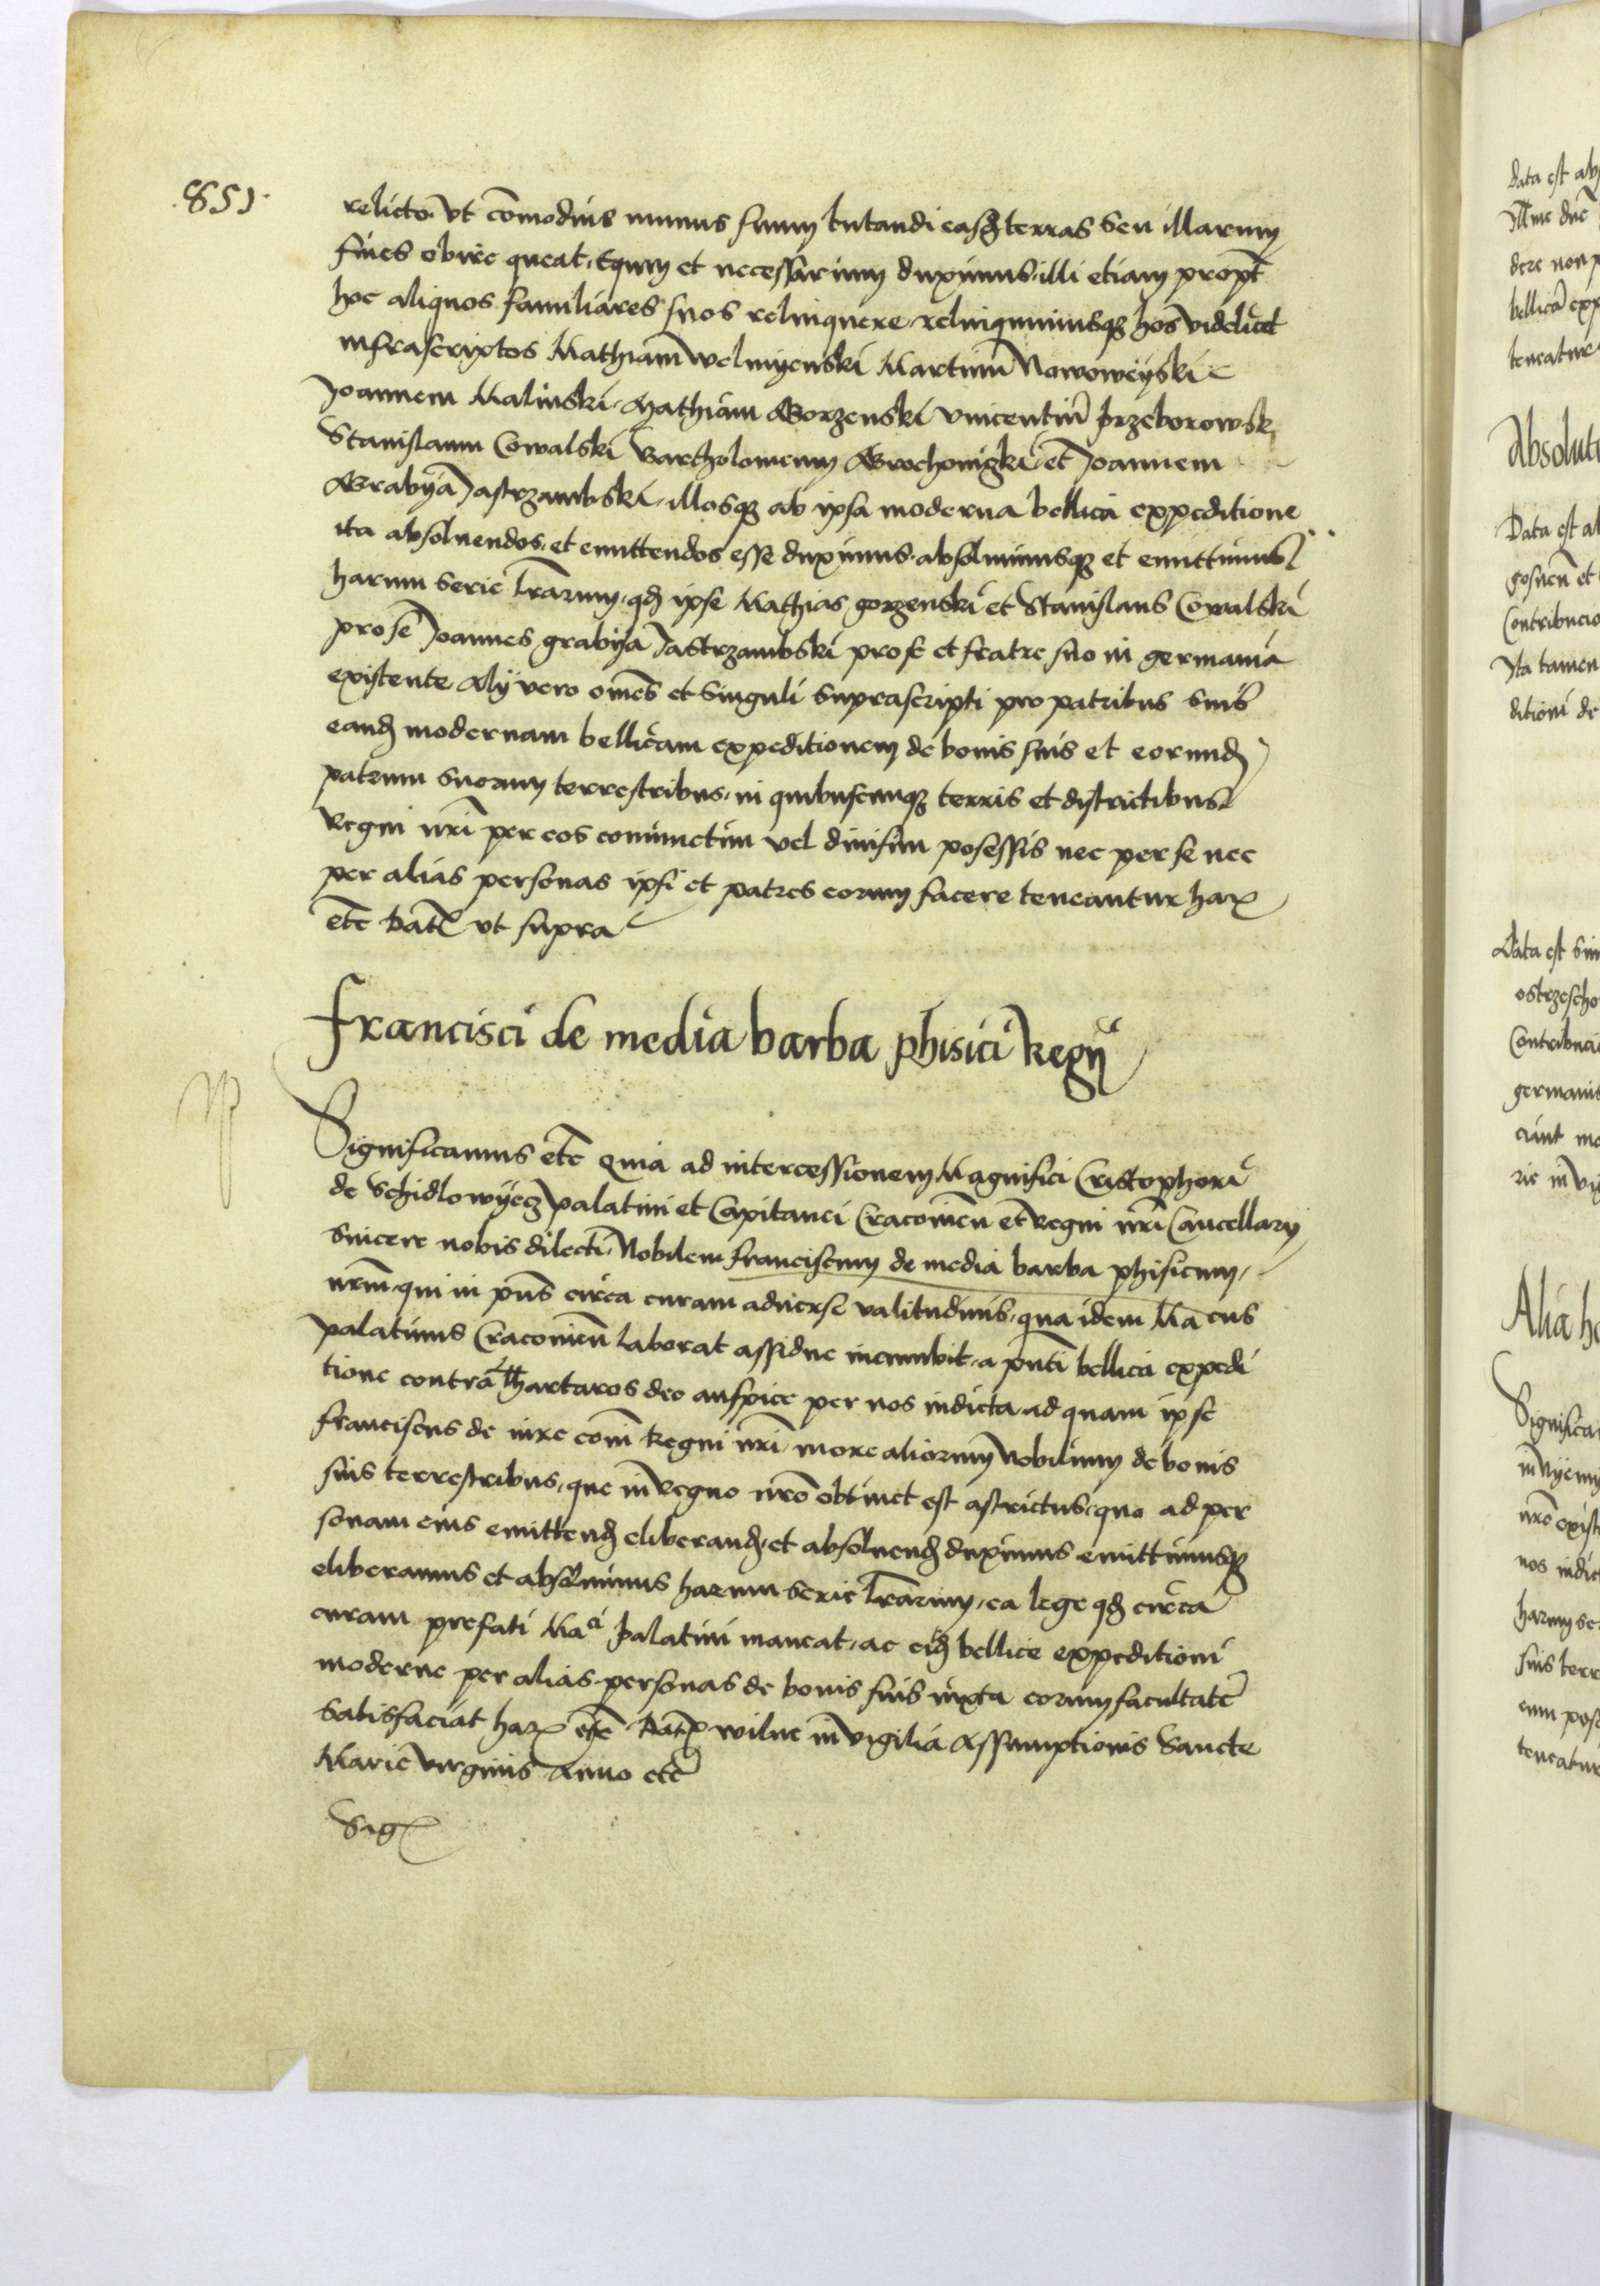 851.
relicto vt com̄odius munus suum tutandi easđ terras seu illarum
fines obire queat, Equum et necessarium duximus illi etiam propt̄
hoc aliquos familiares suos relinquere, relinquimusqꝫ hos videlicet
infrascriptos Mathiam welmyenski Martinū Nowoweyski
Joannem Malinski, Mathiam Gorzenski vincentiū przeborowsk
Stanislaum Cowalski Bartholomeum Grochoniczki, et Joannem
Grabya Jastrzambski, illosqꝫ ab ipsa moderna bellica expeditione
ita absoluendos, et emittendos esse duximus, absoluimusqꝫ et emittimus
harum serie lr̄arum, qđ ipse Mathias gorzenski et Stanislaus Cowalski
pro se Joannes grabya Jastrzambski pro se et fratre suo in germania
existente Alij vero om̄es et singuli suprascripti pro patribus suis
eanđ modernam bellicam expeditionem de bonis suis et eorunđ
patrum suorum terrestribus, in quibuscunqꝫ terris et districtibus
Regni nr̄i per eos coniunctim vel diuisim posessis nec per se nec
per alias personas ipsi et patres eorum facere teneantur harꝫ
etc̄ Datꝫ vt supra
Francisci de media barba phisici Regij
Significamus etc̄ Quia ad intercessionem Magnifici Cristophori
de Schidlowyecz palatini et Capitanei Cracouien̄ et Regni nr̄i Cancellarij
sincere nobis dilecti, Nobilem franciscum de media barba phisicum,
nr̄m, qui in pn̄s circa curam aduerse valitudinis, qua idem Ma cus
palatinus Cracouien̄ laborat assidue incumbit, a pn̄ti bellica expedi
tione contra Thartaros deo auspice per nos indicta ad quam ipse
franciscus de iure com̄i Regni nr̄i, more aliorum Nobilium de bonis
suis terrestribus, que in Regno nr̄o obtinet est astrictus, quo ad per
sonam eius emittenđ eliberanđ, et absoluenđ duximus emittimusqꝫ
eliberamus et absoluimus harum serie lr̄arum, ea lege qđ circa
curam prefati Maci palatini maneat, ac eiđ bellice expeditioni
moderne per alias personas de bonis suis iuxta eorum facultatē
satisfaciat harꝫ etc̄ Datꝫ wilne in vigilia Assumptionis Sancte
Marie virginis Anno etc̄
Sigꝫ